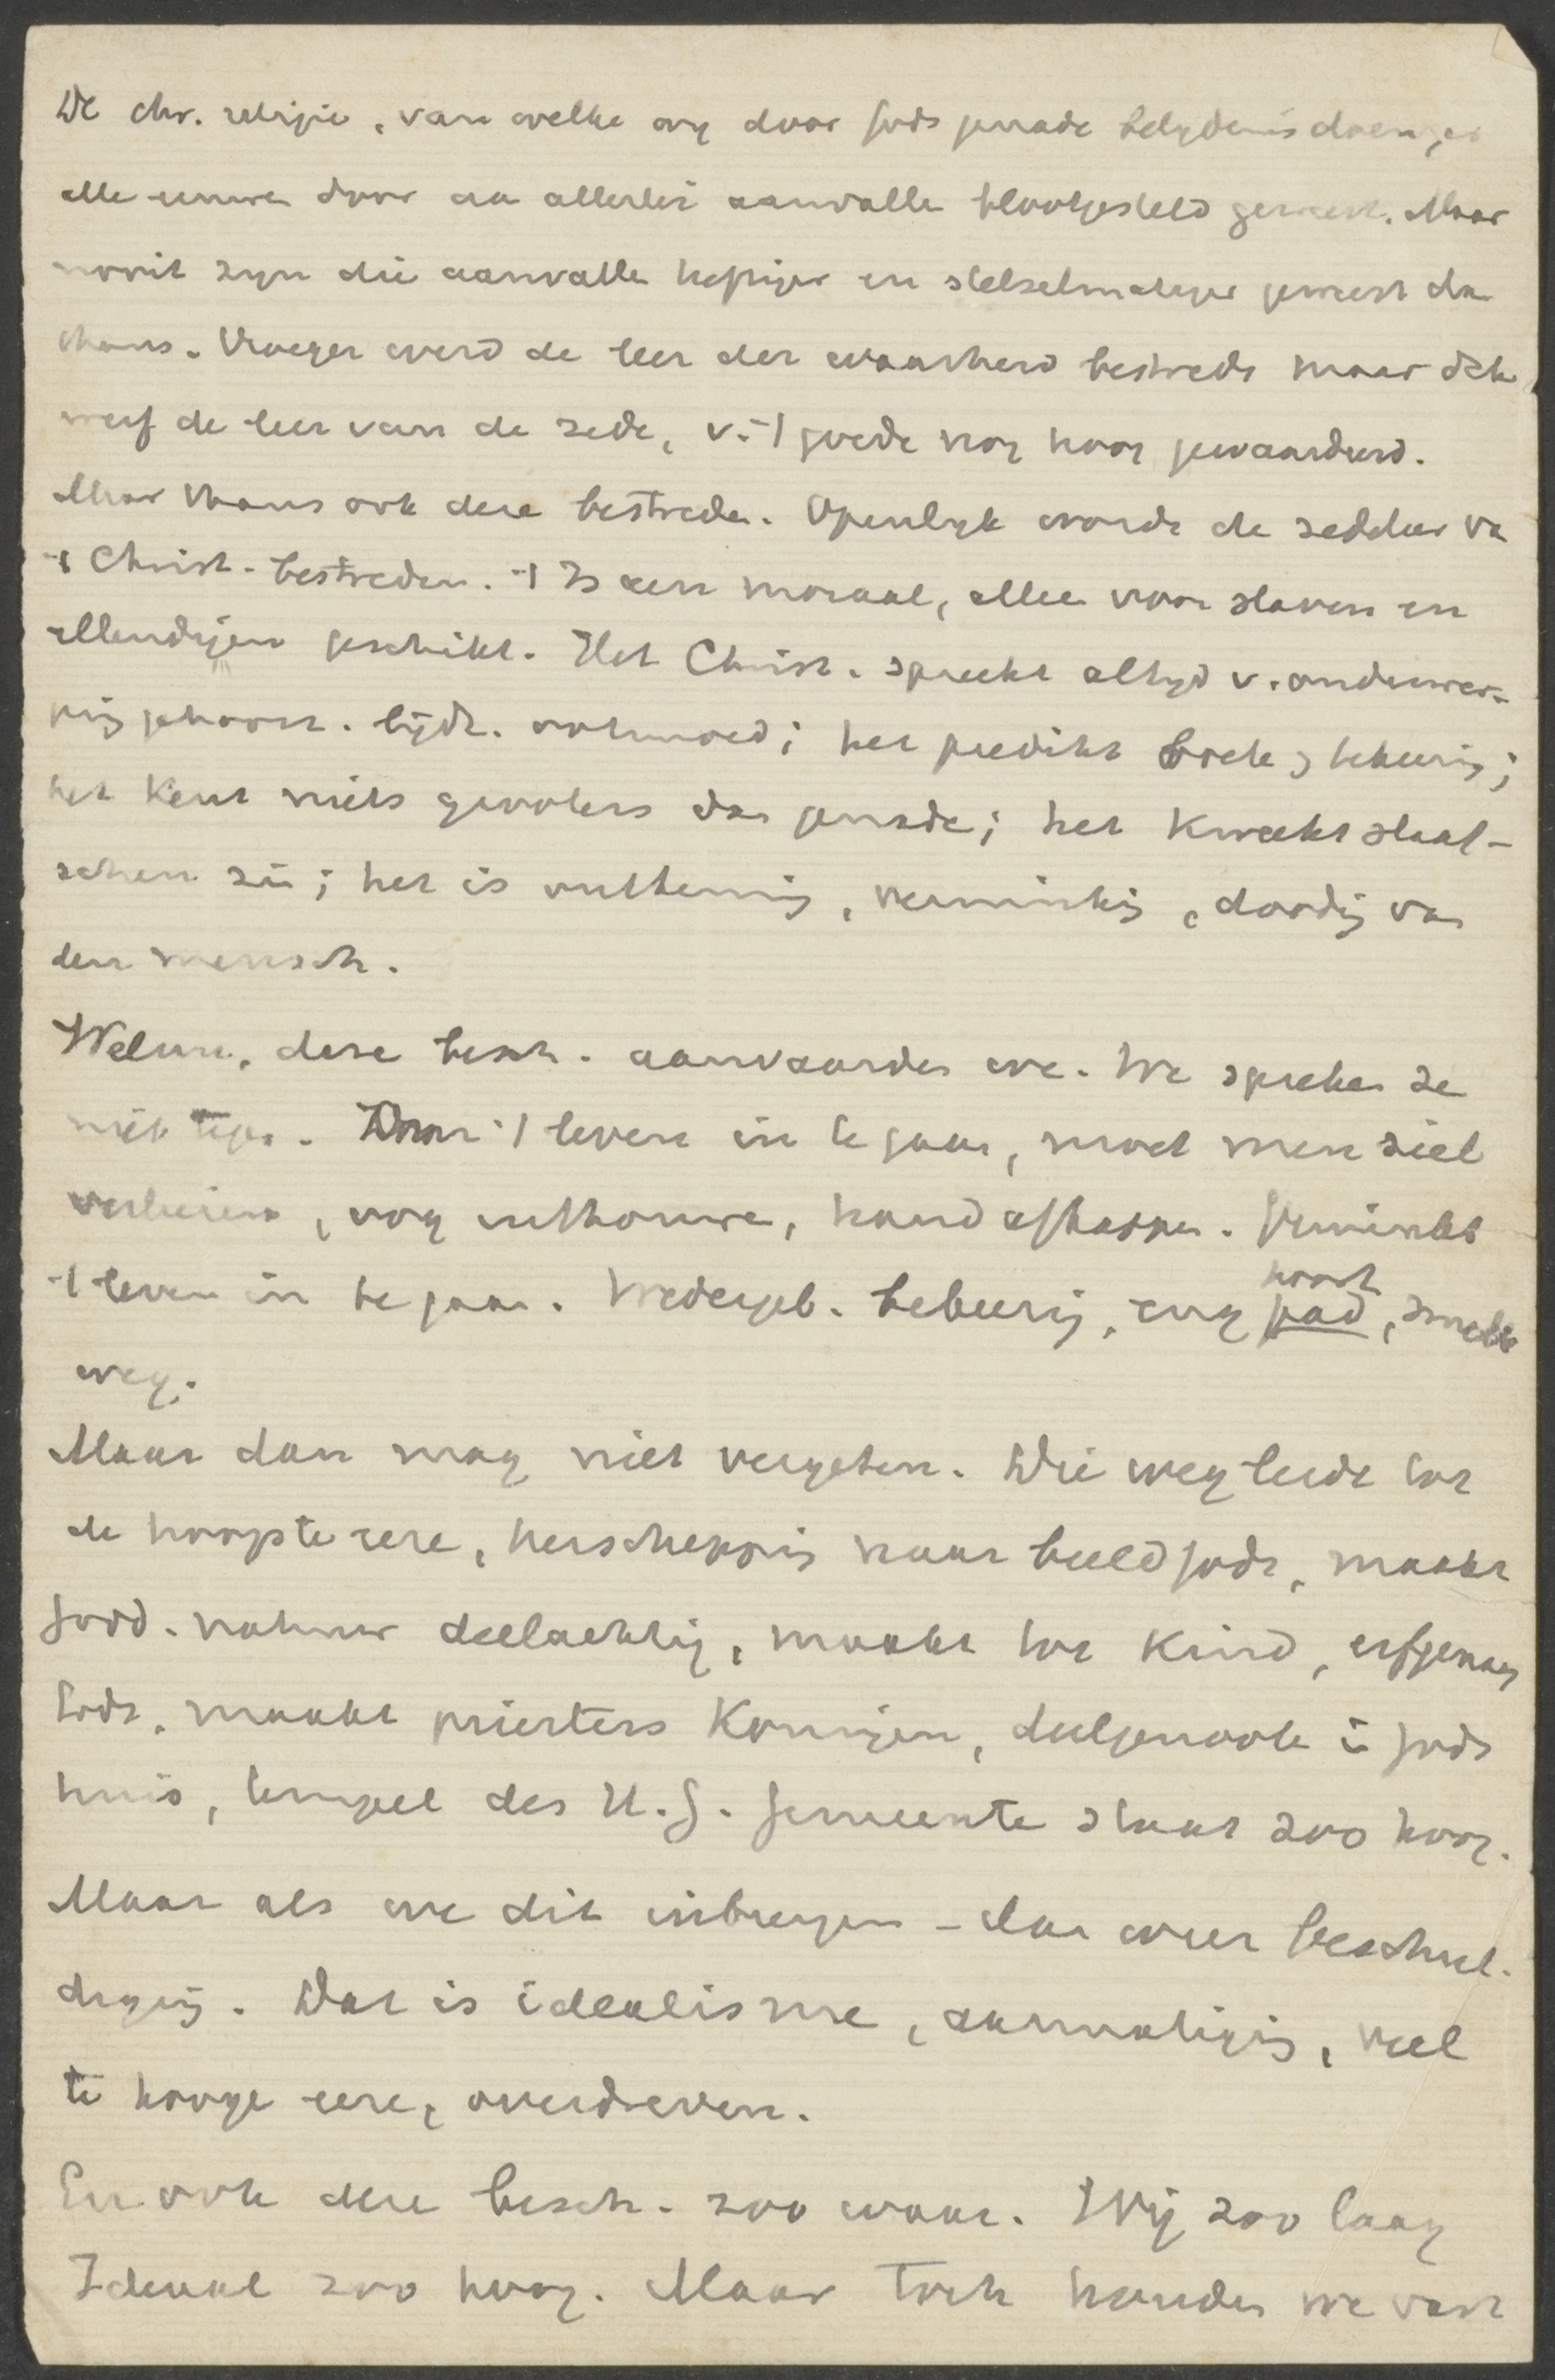 De chr. religie, van welke wy door Gods genade belydenis doen, is
alle eeuwen door aa allerlei aanvalle blootgesteld geweest. Maar
nooit zyn die aanvalle heftiger en stelselmatiger geweest da
thans. Vroeger werd de leer der waarheid bestrede maar dik
werf de leer van de zede, v. 't goede nog hoog gewaardeerd.
Maar thans ook deze bestrede. Openlyk worde de zedeleer va
't Christ. bestreden. 't Is een moraal, allee voor slaven en
ellendigen geschikt. Het Christ. spreekt altyd v. onderwer-
pig gehoorz. lijdz. ootmoed; het predikt boete, bekeerig;
het kent niets grooters dan genade; het kweekt slaaf-
schen zin; het is ontkennig, verminkig, doodig va
den mensch.
Welnu, deze besch. aanvaarden we. We spreken ze
niet tegen. Om 't leven in te gaan, moet men ziel
verliezen, oog uithouwe, hand afkappe. Verminkt
't leven in te gaan. Wedergeb. bekeerig, eng poort
pad, smalle
weg.
Maar dan mag niet vergeten. Die weg leidt tot
de hoogste eere, herscheppig naar beeld Gods, maakt
Godd. natuur deelachtig, maakt tot kind, erfgenaam
Gods, maakt priesters Koningen, deelgenoote i Gods
huis, tempel des H. G. Gemeente staat zoo hoog.
Maar als we dit inbrengen - dan weer beschul-
digig. Dat is idealisme, aanmatigig, veel
te hooge eere, overdreven.
En ook deze besch. zoo waar. Wij zoo laag
Ideaal zoo hoog. Maar toch houden we vast